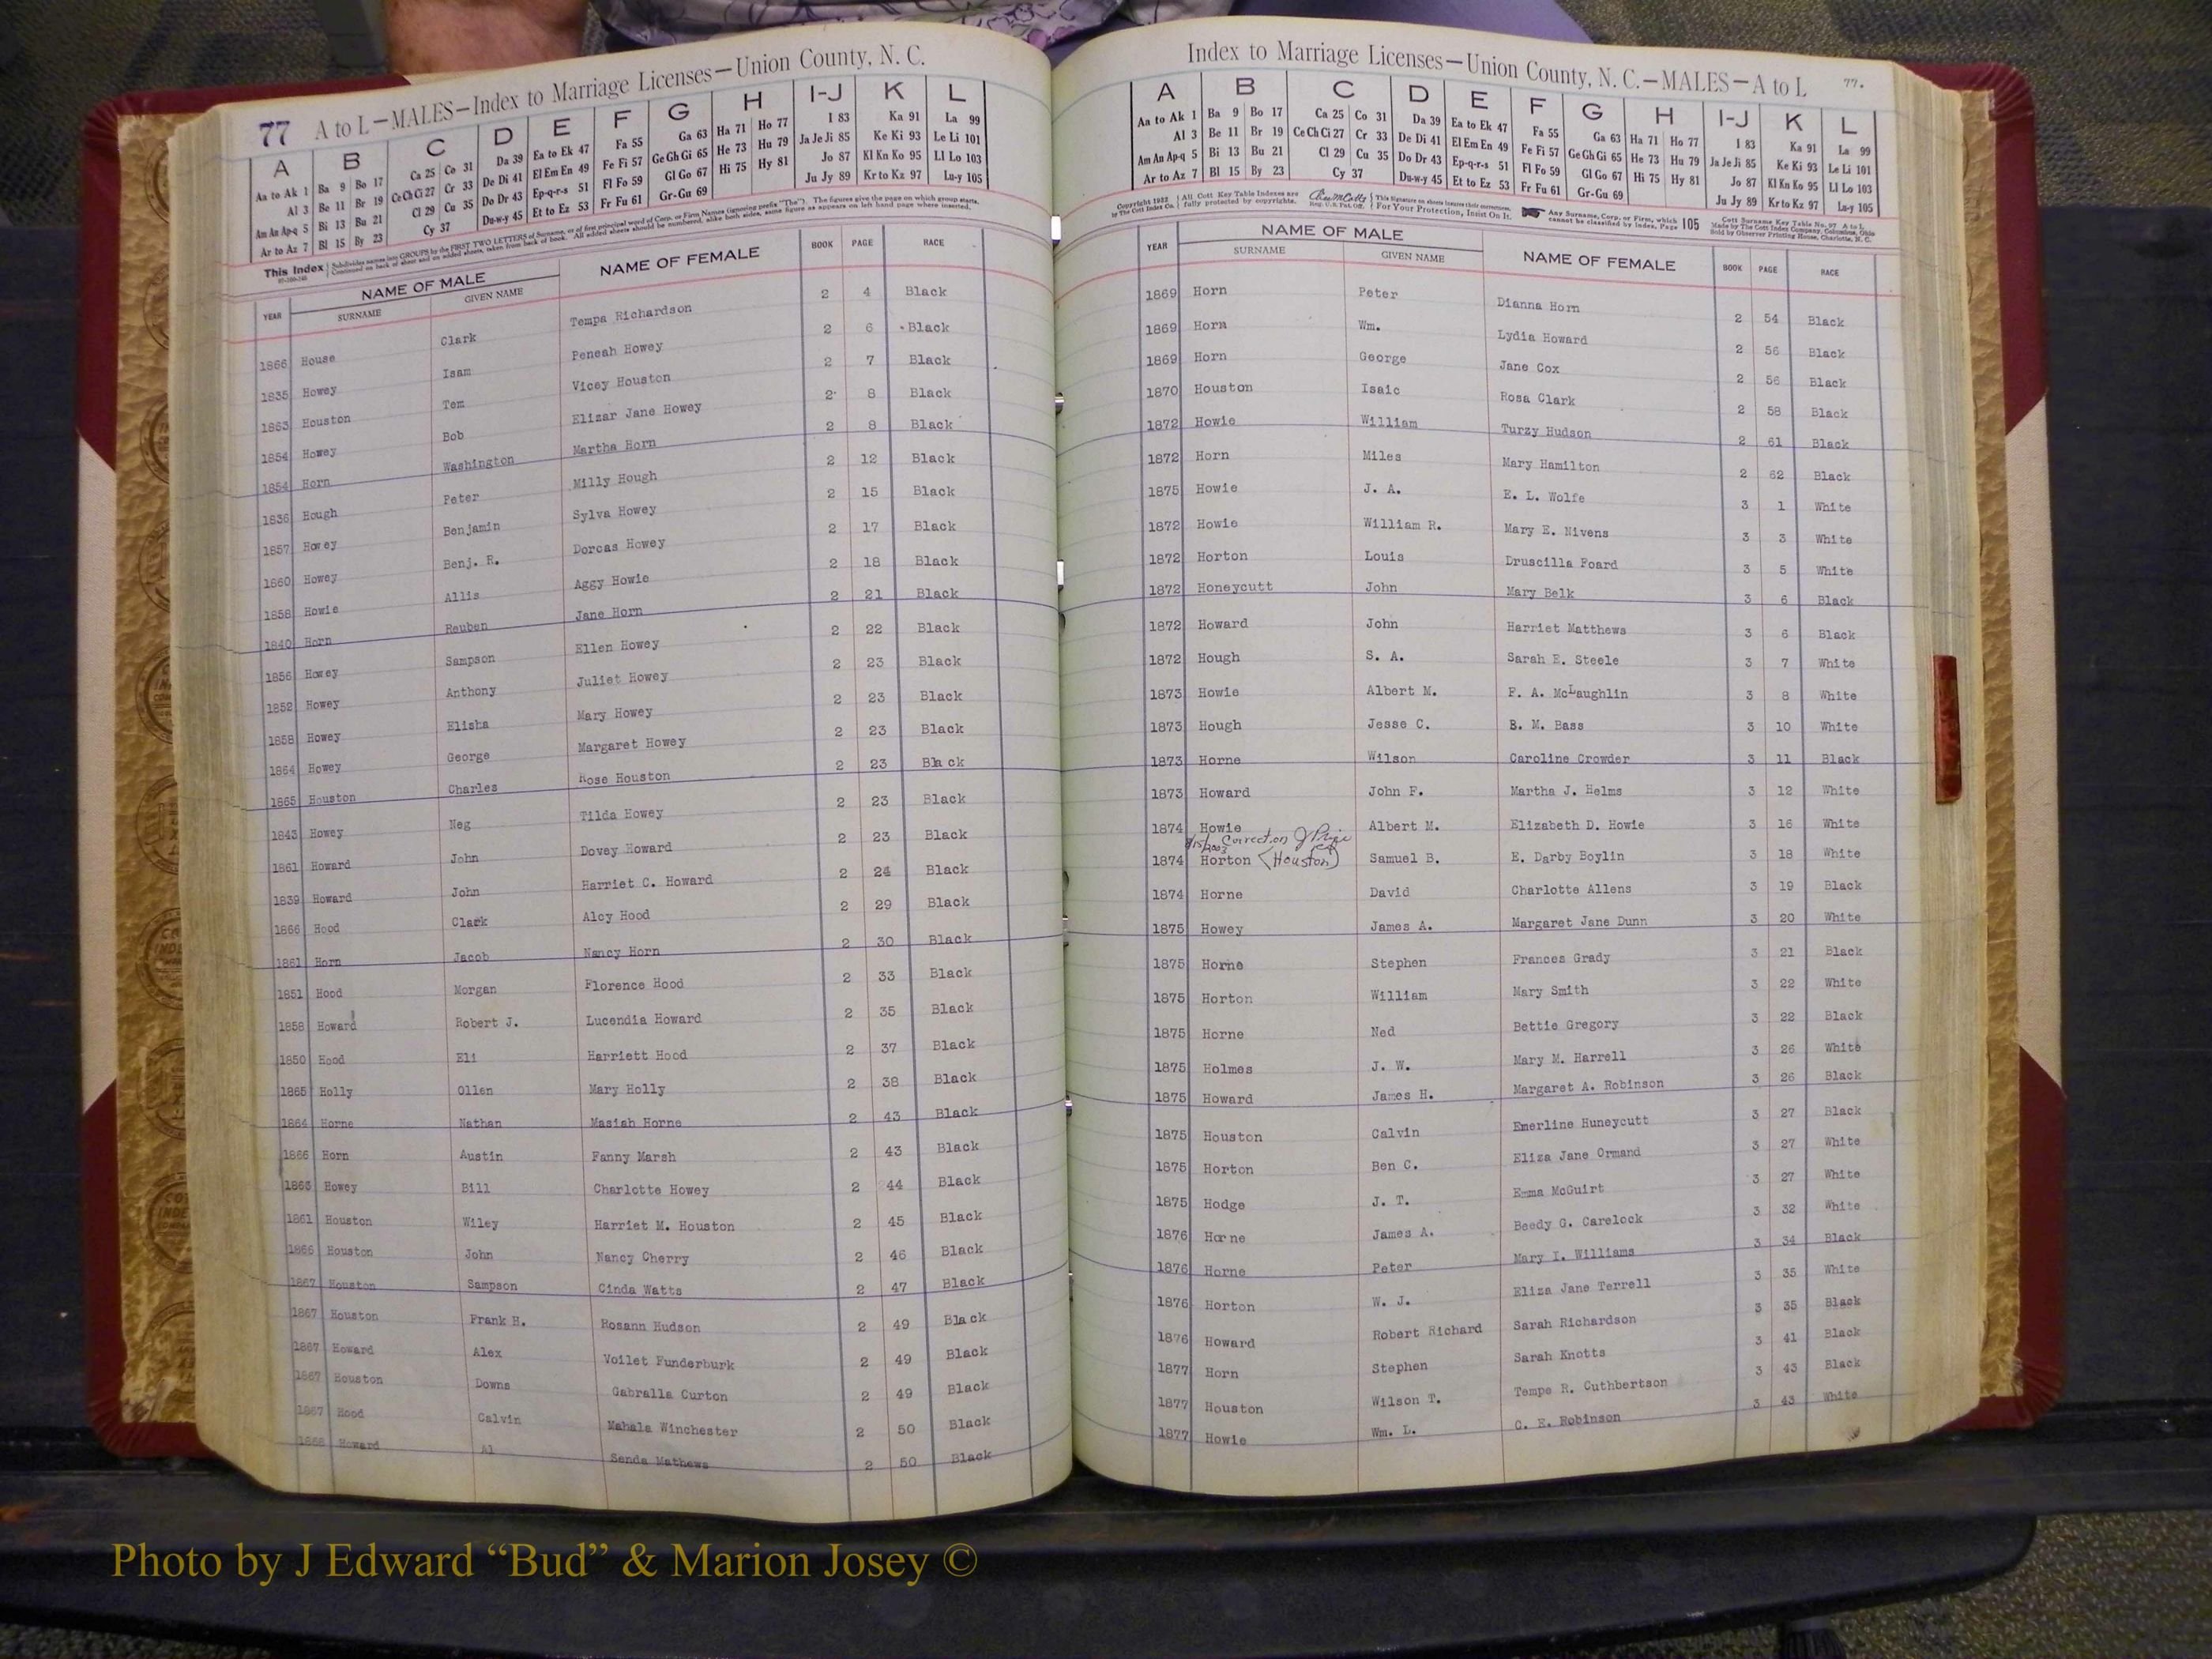 77 A to L — MALES — Index to Marriage Licenses — Union County, N. C.
A B C D E F G H I-J K L
Aa to Ak 1 Ba 9 Bo 17 Ca 25 Co 31 Da 39 Ea to Ek 47 Fa 55 Ga 63 Ha 71 Ho 77 I 83 Ka 91 La 99
Al 3 Be 11 Br 19 Ce Ch Ci 27 Cr 33 De Di 41 El Em En 49 Fe Fi 57 Ge Gh Gi 65 He 73 Hu 79 Ja Je Ji 85 Ke Ki 93 Le Li 101
Am An Ap-q 5 Bi 13 Bu 21 Cl 29 Cu 35 Do Dr 43 Ep-q-r-s 51 Fl Fo 59 Gl Go 67 Hi 75 Hy 81 Jo 87 Kl Kn Ko 95 Ll Lo 103
Ar to Az 7 Bl 15 By 23 Cy 37 Du-w-y 45 Et to Ez 53 Fr Fu 61 Gr-Gu 69 Ju Jy 89 Kr to Kz 97 Lu-y 105
This Index Subdivides names into GROUPS by the FIRST TWO LETTERS of Surname, or of first principal word of Corp. or Firm Names (ignoring prefix "The"). The figures give the page on which group starts.
Continued on back of sheet and on added sheets, taken from back of book. All added sheets should be numbered, alike both sides, same figure as appears on left hand page where inserted.
YEAR NAME OF MALE NAME OF FEMALE BOOK PAGE RACE
SURNAME GIVEN NAME
1866 House Clark Tempa Richardson 2 4 Black
1835 Howey Isam Peneah Howey 2 6 Black
1863 Houston Tom Vicey Houston 2 7 Black
1854 Howey Bob Elizar Jane Howey 2 8 Black
1854 Horn Washington Martha Horn 2 8 Black
1836 Hough Peter Milly Hough 2 12 Black
1857 Howey Benjamin Sylva Howey 2 15 Black
1860 Howey Benj. R. Dorcas Howey 2 17 Black
1858 Howie Allis Aggy Howie 2 18 Black
1840 Horn Reuben Jane Horn 2 21 Black
1856 Howey Sampson Ellen Howey 2 22 Black
1852 Howey Anthony Juliet Howey 2 23 Black
1858 Howey Elisha Mary Howey 2 23 Black
1864 Howey George Margaret Howey 2 23 Black
1865 Houston Charles Rose Houston 2 23 Black
1843 Howey Neg Tilda Howey 2 23 Black
1861 Howard John Dovey Howard 2 23 Black
1839 Howard John Harriet C. Howard 2 24 Black
1866 Hood Clark Alcy Hood 2 29 Black
1861 Horn Jacob Nancy Horn 2 30 Black
1851 Hood Morgan Florence Hood 2 33 Black
1858 Howard Robert J. Lucendia Howard 2 35 Black
1850 Hood Eli Harriett Hood 2 37 Black
1865 Holly Ollen Mary Holly 2 38 Black
1864 Horne Nathan Masiah Horne 2 43 Black
1866 Horn Austin Fanny Marsh 2 43 Black
1863 Howey Bill Charlotte Howey 2 44 Black
1861 Houston Wiley Harriet M. Houston 2 45 Black
1866 Houston John Nancy Cherry 2 46 Black
1867 Houston Sampson Cinda Watts 2 47 Black
1867 Houston Frank H. Rosann Hudson 2 49 Black
1867 Howard Alex Voilet Funderburk 2 49 Black
1867 Houston Downs Gabralla Curton 2 49 Black
1867 Hood Calvin Mahala Winchester 2 50 Black
1868 Howard Al Senda Mathews 2 50 Black
Index to Marriage Licenses — Union County, N. C. — MALES — A to L 77.
A B C D E F G H I-J K L
Aa to Ak 1 Ba 9 Bo 17 Ca 25 Co 31 Da 39 Ea to Ek 47 Fa 55 Ga 63 Ha 71 Ho 77 I 83 Ka 91 La 99
Al 3 Be 11 Br 19 Ce Ch Ci 27 Cr 33 De Di 41 El Em En 49 Fe Fi 57 Ge Gh Gi 65 He 73 Hu 79 Ja Je Ji 85 Ke Ki 93 Le Li 101
Am An Ap-q 5 Bi 13 Bu 21 Cl 29 Cu 35 Do Dr 43 Ep-q-r-s 51 Fl Fo 59 Gl Go 67 Hi 75 Hy 81 Jo 87 Kl Kn Ko 95 Ll Lo 103
Ar to Az 7 Bl 15 By 23 Cy 37 Du-w-y 45 Et to Ez 53 Fr Fu 61 Gr-Gu 69 Ju Jy 89 Kr to Kz 97 Lu-y 105
Copyright 1922 by The Cott Index Co. All Cott Key Table Indexes are fully protected by copyrights. Reg. U.S. Pat. Off. This Signature on sheets insures their correctness. For Your Protection, Insist On It. Any Surname, Corp. or Firm, which cannot be classified by Index, Page 105 Cott Surname Key Table No. 97 A to L Made by The Cott Index Company, Columbus, Ohio Sold by Observer Printing House, Charlotte, N. C.
YEAR NAME OF MALE NAME OF FEMALE BOOK PAGE RACE
SURNAME GIVEN NAME
1869 Horn Peter Dianna Horn 2 54 Black
1869 Horn Wm. Lydia Howard 2 56 Black
1869 Horn George Jane Cox 2 56 Black
1870 Houston Isaic Rosa Clark 2 58 Black
1872 Howie William Turzy Hudson 2 61 Black
1872 Horn Miles Mary Hamilton 2 62 Black
1875 Howie J. A. E. L. Wolfe 3 1 White
1872 Howie William R. Mary E. Nivens 3 3 White
1872 Horton Louis Druscilla Foard 3 5 White
1872 Honeycutt John Mary Belk 3 6 Black
1872 Howard John Harriet Matthews 3 6 Black
1872 Hough S. A. Sarah E. Steele 3 7 White
1873 Howie Albert M. F. A. McLaughlin 3 8 White
1873 Hough Jesse C. B. M. Bass 3 10 White
1873 Horne Wilson Caroline Crowder 3 11 Black
1873 Howard John F. Martha J. Helms 3 12 White
1874 Howie Albert M. Elizabeth D. Howie 3 16 White
Correction
1874 Horton (Houston) Samuel B. E. Darby Boylin 3 18 White
1874 Horne David Charlotte Allens 3 19 Black
1875 Howey James A. Margaret Jane Dunn 3 20 White
1875 Horne Stephen Frances Grady 3 21 Black
1875 Horton William Mary Smith 3 22 White
1875 Horne Ned Bettie Gregory 3 22 Black
1875 Holmes J. W. Mary M. Harrell 3 26 White
1875 Howard James H. Margaret A. Robinson 3 26 Black
1875 Houston Calvin Emerline Huneycutt 3 27 Black
1875 Horton Ben C. Eliza Jane Ormand 3 27 White
1875 Hodge J. T. Emma McGuirt 3 27 White
1876 Horne James A. Beedy G. Carelock 3 32 White
1876 Horne Peter Mary I. Williams 3 34 Black
1876 Horton W. J. Eliza Jane Terrell 3 35 White
1876 Howard Robert Richard Sarah Richardson 3 35 Black
1877 Horn Stephen Sarah Knotts 3 41 Black
1877 Houston Wilson T. Tempe R. Cuthbertson 3 43 Black
1877 Howie Wm. L. C. E. Robinson 3 43 White
Photo by J Edward “Bud” & Marion Josey ©